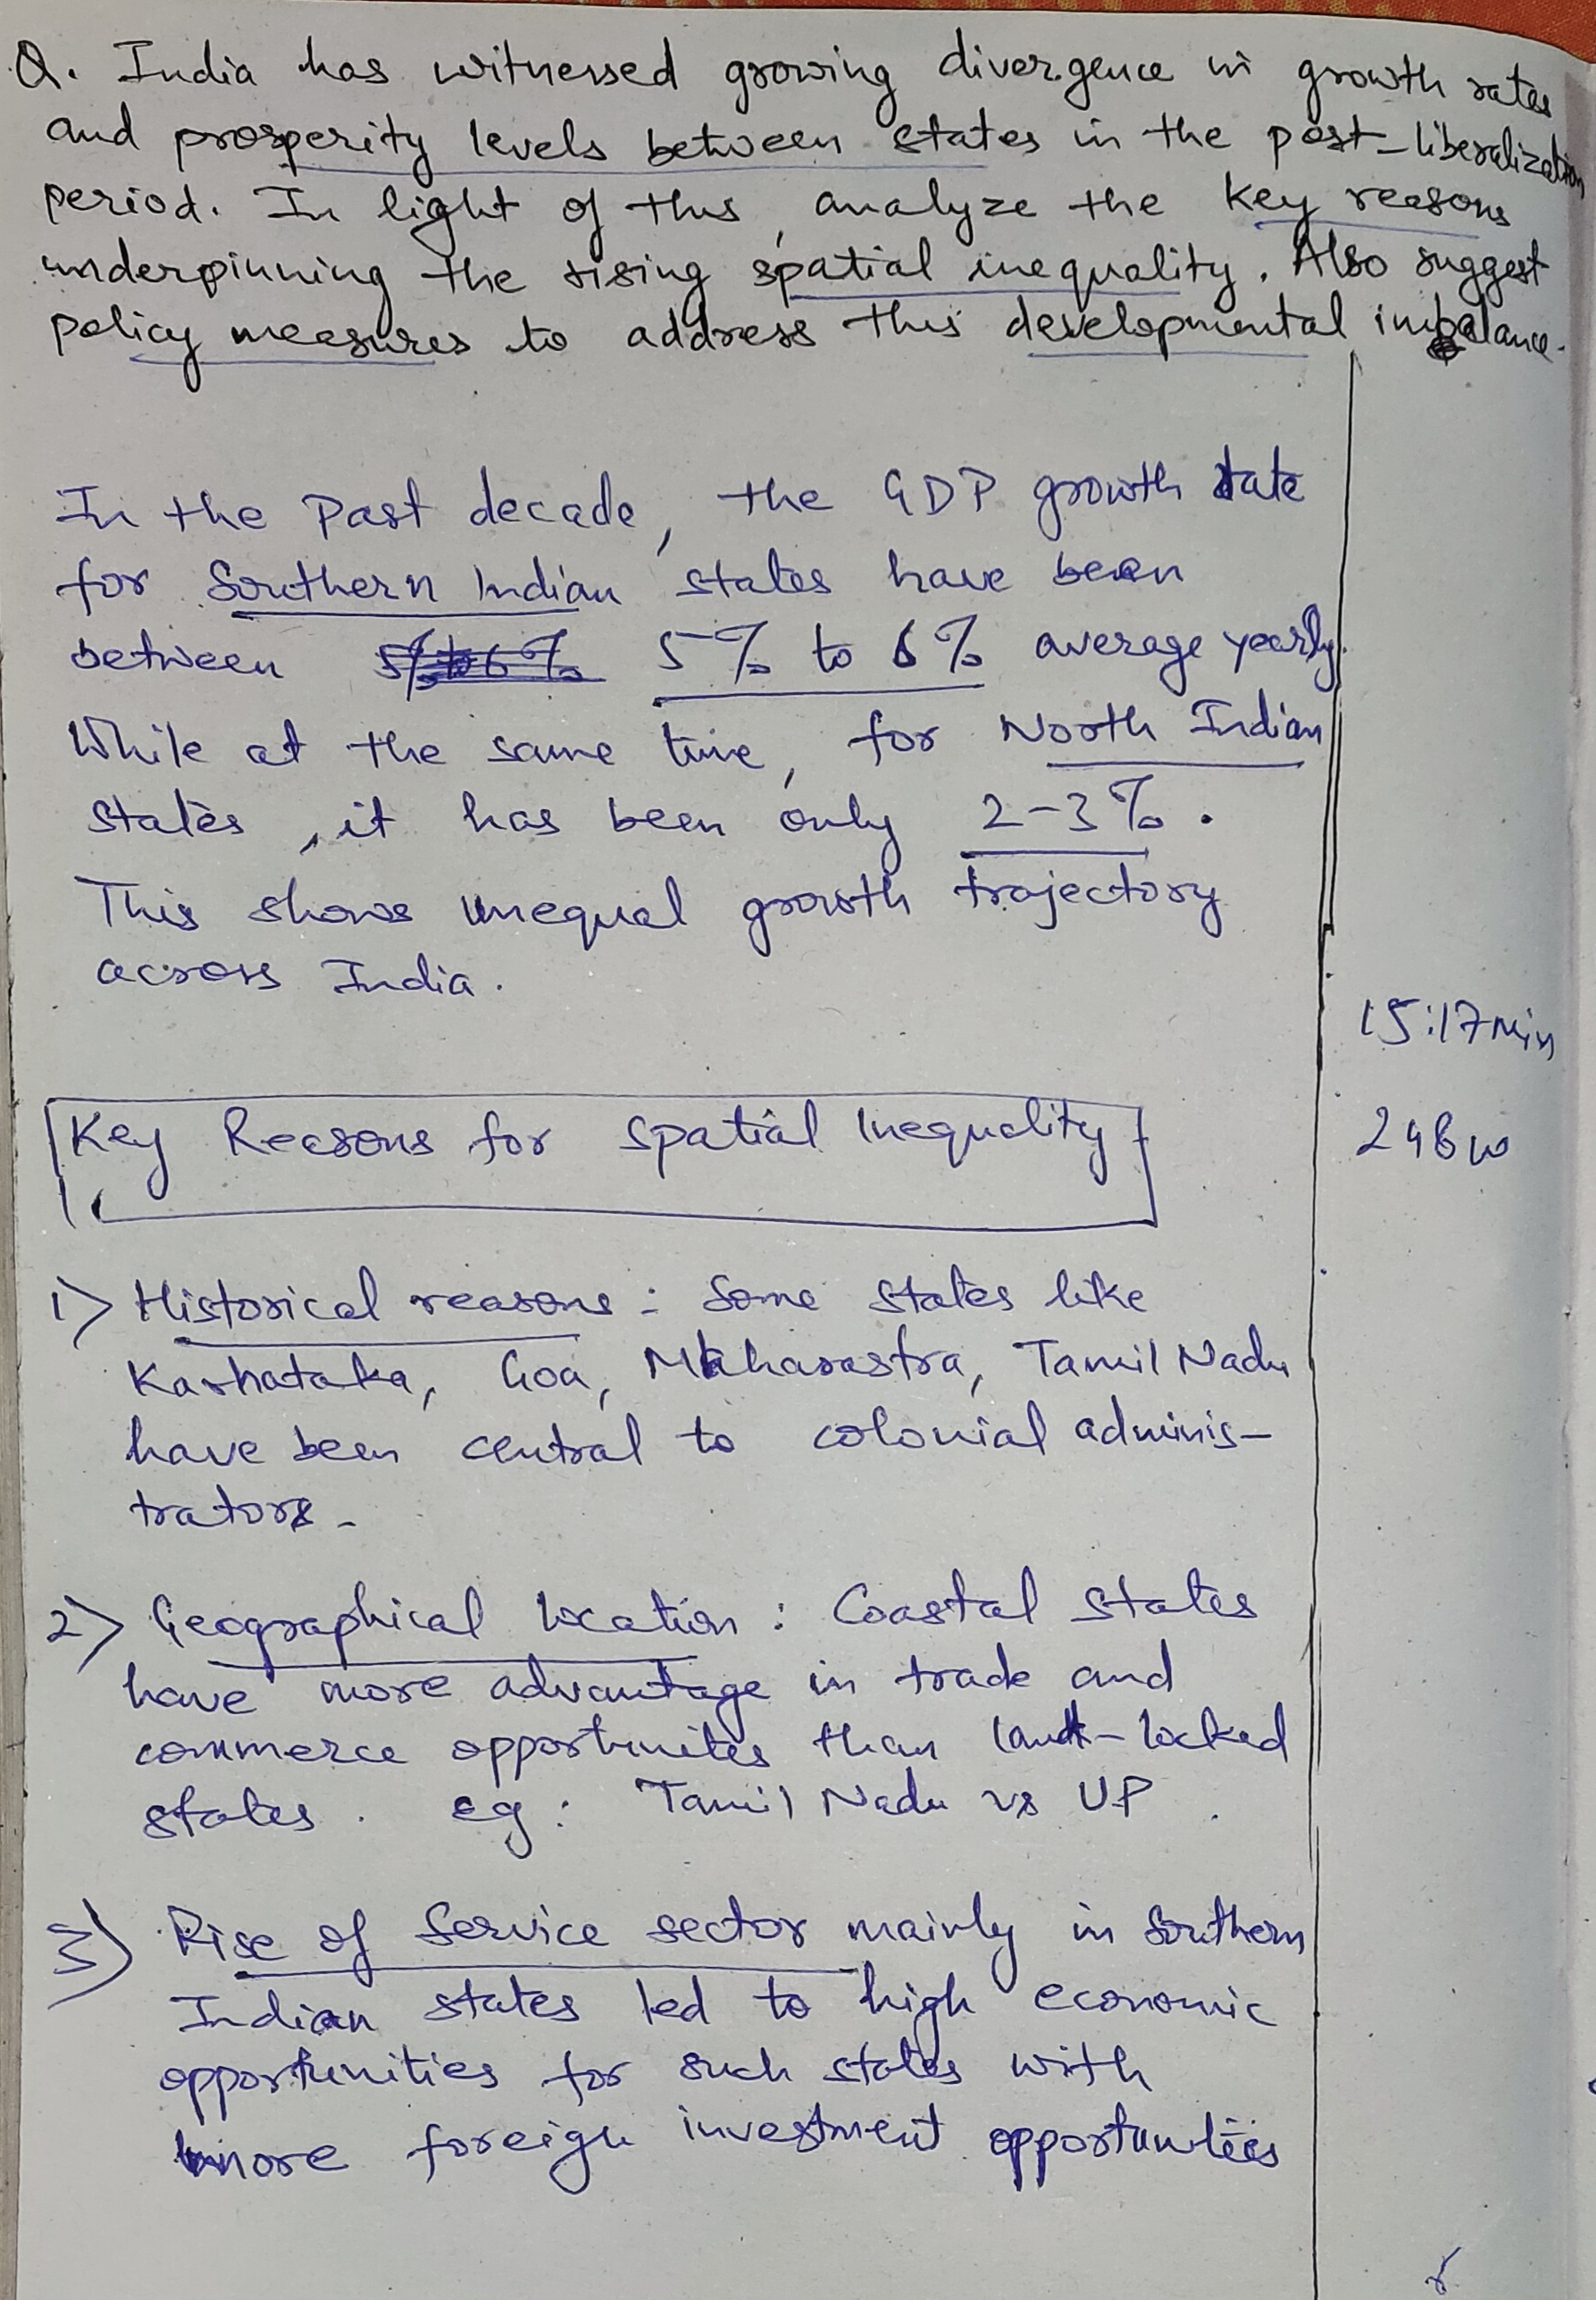 Q. India has witnessed growing divergence in growth rates
and prosperity levels between states in the post-liberalization
period. In light of this, analyze the key reasons
underpinning the rising spatial inequality. Also suggest
policy measures to address this developmental imbalance.
In the Past decade, the GDP growth rate
for Southern Indian states have been
between 5% to 6% 5% to 6% average yearly.
While at the same time, for North Indian
states, it has been only 2-3%.
This shows unequal growth trajectory
across India.
15:17 min
Key Reasons for Spatial Inequality
248 w
1) Historical reasons: Some states like
Karnataka, Goa, Maharastra, Tamil Nadu
have been central to colonial adminis-
trators.
2) Geographical location: Coastal states
have more advantage in trade and
commerce opportunites than land-locked
states. eg: Tamil Nadu vs UP.
3) Rise of Service sector mainly in Southern
Indian states led to high economic
opportunities for such states with
more foreign investment opportunities